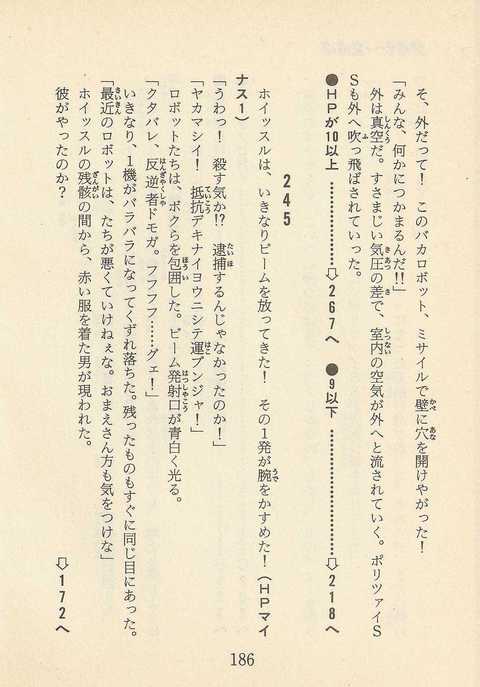 そ、外だって! このバカロボット、ミサイルで壁に穴を開けやがった!
「みんな、何かにつかまるんだ!!」
外は真空だ。すさまじい気圧の差で、室内の空気が外へと流されていく。ポリツァイS
Sも外へ吹っ飛ばされていった。
●HPが10以上……………⇨267へ ●9以下……………………⇨218へ
245
ホイッスルは、いきなりビームを放ってきた! その1発が腕をかすめた!(HPマイ
ナス1)
「うわっ! 殺す気か!? 逮捕するんじゃなかったのか!」
「ヤカマシイ! 抵抗デキナイヨウニシテ運ブンジャ!」
ロボットたちは、ボクらを包囲した。ビーム発射口が青白く光る。
「クタバレ、反逆者ドモガ。フフフフ……グェ!」
いきなり、1機がバラバラになってくずれ落ちた。残ったものもすぐに同じ目にあった。
「最近のロボットは、たちが悪くていけねぇな。おまえさん方も気をつけな」
ホイッスルの残骸の間から、赤い服を着た男が現われた。
彼がやったのか?
⇨172へ
186